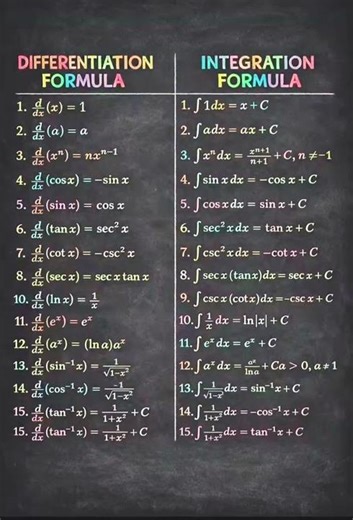 DIFFERENTIATION FORMULA
1. d/dx (x) = 1
2. d/dx (a) = a
3. d/dx (xⁿ) = nxⁿ⁻¹
4. d/dx (cos x) = −sin x
5. d/dx (sin x) = cos x
6. d/dx (tan x) = sec² x
7. d/dx (cot x) = −csc² x
8. d/dx (sec x) = sec x tan x
10. d/dx (ln x) = 1/x
11. d/dx (eˣ) = eˣ
12. d/dx (aˣ) = (ln a)aˣ
13. d/dx (sin⁻¹ x) = 1/√(1−x²)
14. d/dx (cos⁻¹ x) = −1/√(1−x²)
15. d/dx (tan⁻¹ x) = 1/(1+x²) + C
15. d/dx (tan⁻¹ x) = 1/(1+x²) + C
INTEGRATION FORMULA
1. ∫ 1dx = x + C
2. ∫ adx = ax + C
3. ∫ xⁿ dx = xⁿ⁺¹/(n+1) + C, n ≠ −1
4. ∫ sin x dx = −cos x + C
5. ∫ cos x dx = sin x + C
6. ∫ sec² x dx = tan x + C
7. ∫ csc² x dx = −cot x + C
8. ∫ sec x (tanx)dx = sec x + C
9. ∫ csc x (cotx)dx = −csc x + C
10. ∫ 1/x dx = ln|x| + C
11. ∫ eˣ dx = eˣ + C
12. ∫ aˣ dx = aˣ/ln a + Ca > 0, a ≠ 1
13. ∫ 1/√(1−x²) dx = sin⁻¹ x + C
14. ∫ 1/(1+x²) dx = −cos⁻¹ x + C
15. ∫ 1/(1+x²) dx = tan⁻¹ x + C